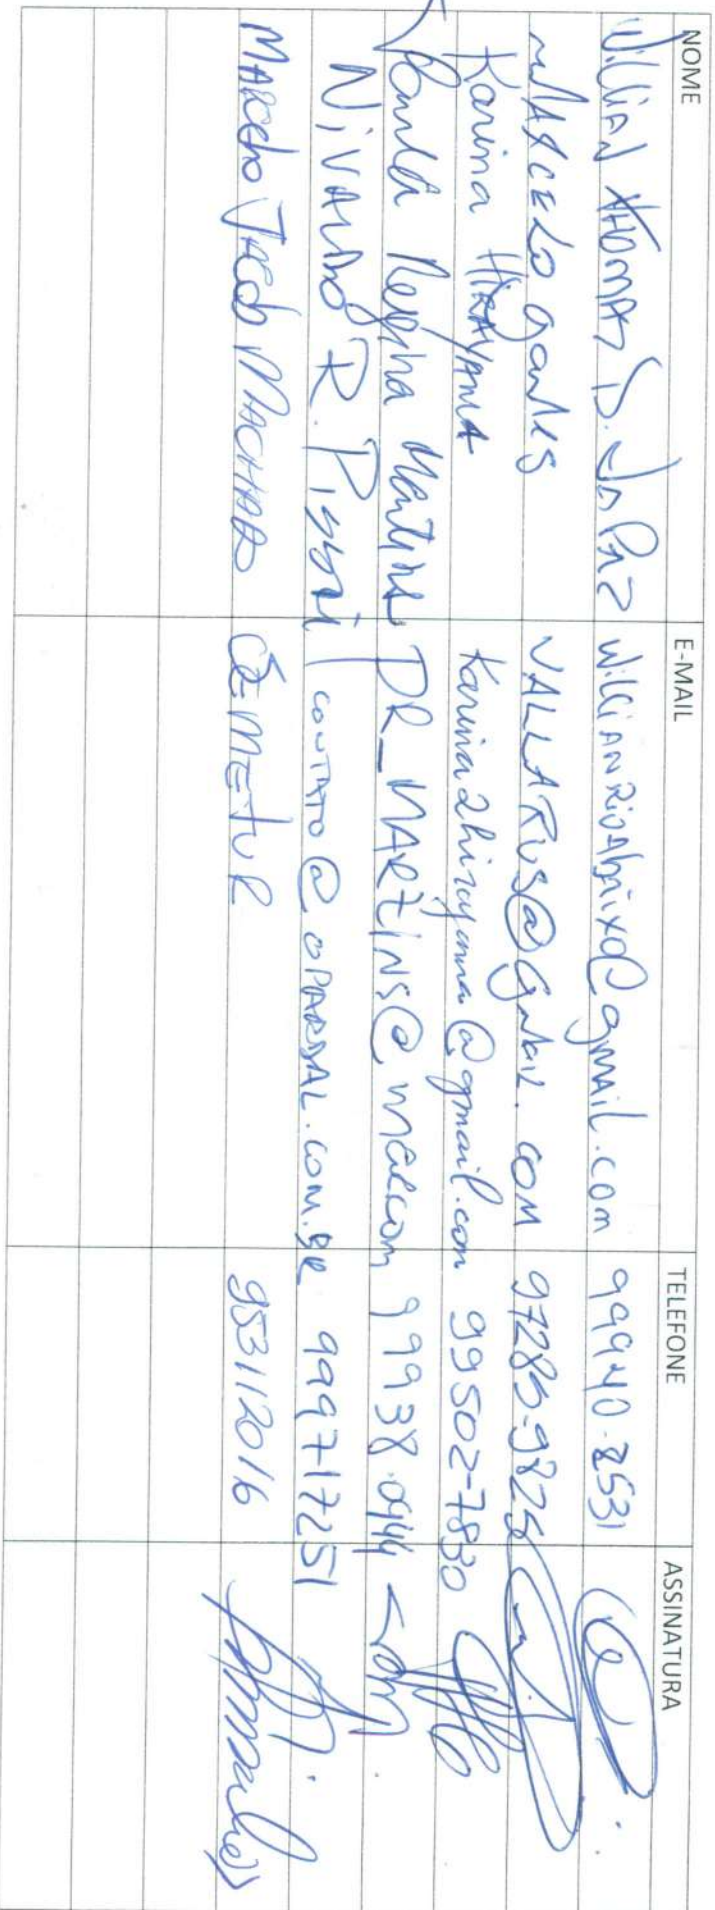 NOME E-MAIL TELEFONE ASSINATURA
Willian THOMAZ D. Da Paz WillianRioAbaixo@gmail.com 99940-8531
MARCELO GOMES VALLARUS@gmail.com 97285-9825
Karina HIRAYAMA Karina2hirayama@gmail.com 99502-7830
Paula Regina Martins DR_MARTINS@ 99938.0944
NIVALDO R. contato@OPARDAL.com.BR 999717251
MARCELO JACOB MACHADO CEMETUR 953112016